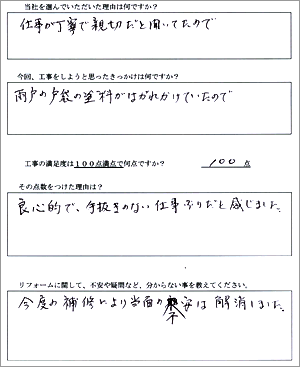 当社を選んでいただいた理由は何ですか？
仕事が丁寧で親切だと聞いてたので
今回、工事をしようと思ったきっかけは何ですか？
雨戸の戸袋の塗料がはがれかけていたので
工事の満足度は100点満点で何点ですか？ 100 点
その点数をつけた理由は？
良心的で、手抜きのない仕事ぶりだと感じました。
リフォームに関して、不安や疑問など、分からない事を教えてください。
今度の補修により当面の不安は解消しました。